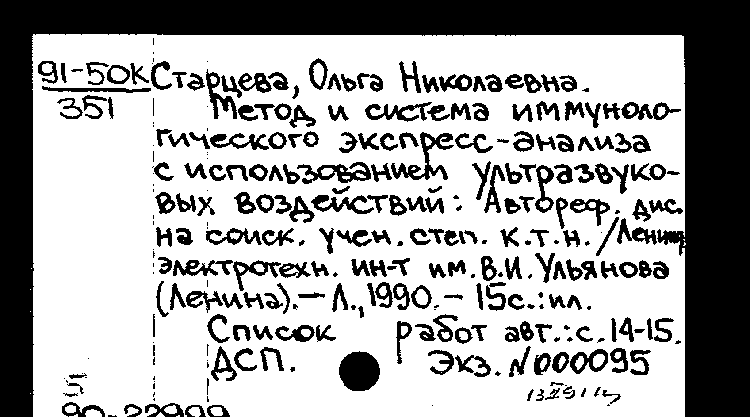 91-50К Старцева, Ольга Николаевна.
351 Метод и система иммуноло-
гического экспресс-анализа
с использованием ультразвуко-
вых воздействий: Автореф. дис.
на соиск. учен. степ. к.т.н. /Ленингр
электротехн. ин-т им. В.И. Ульянова
(Ленина). — Л., 1990. — 15с.: ил.
Список работ авт.: с. 14-15.
ДСП. Экз. N000095
90-22999